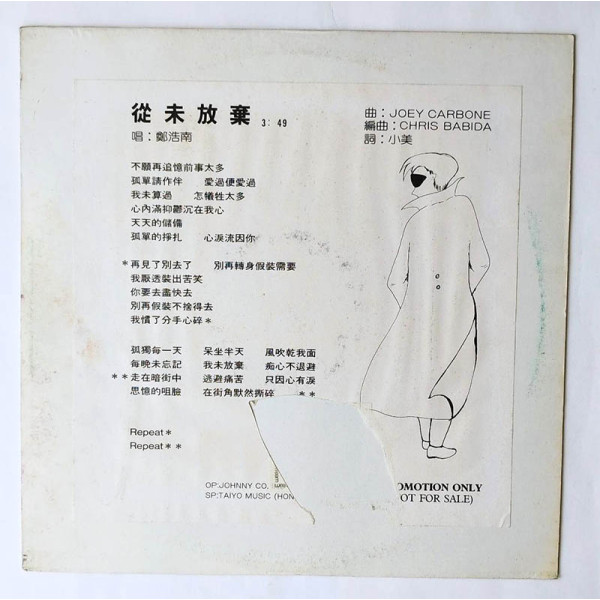 從未放棄 3:49
唱：鄭浩南
曲：JOEY CARBONE
編曲：CHRIS BABIDA
詞：小美
不願再追憶前事太多
孤單請作伴 愛過便愛過
我未算過 怎犧牲太多
心內滿抑鬱沉在我心
天天的儲備
孤單的掙扎 心淚流因你
*再見了別去了 別再轉身假裝需要
我厭透裝出苦笑
你要去盡快去
別再假裝不捨得去
我慣了分手心碎*
孤獨每一天 呆坐半天 風吹乾我面
每晚未忘記 我未放棄 痴心不退避
**走在暗街中 逃避痛苦 只因心有淚
思憶的咀臉 在街角默然撕碎 **
Repeat*
Repeat**
OP:JOHNNY CO.
SP:TAIYO MUSIC (HON
OMOTION ONLY
OT FOR SALE)